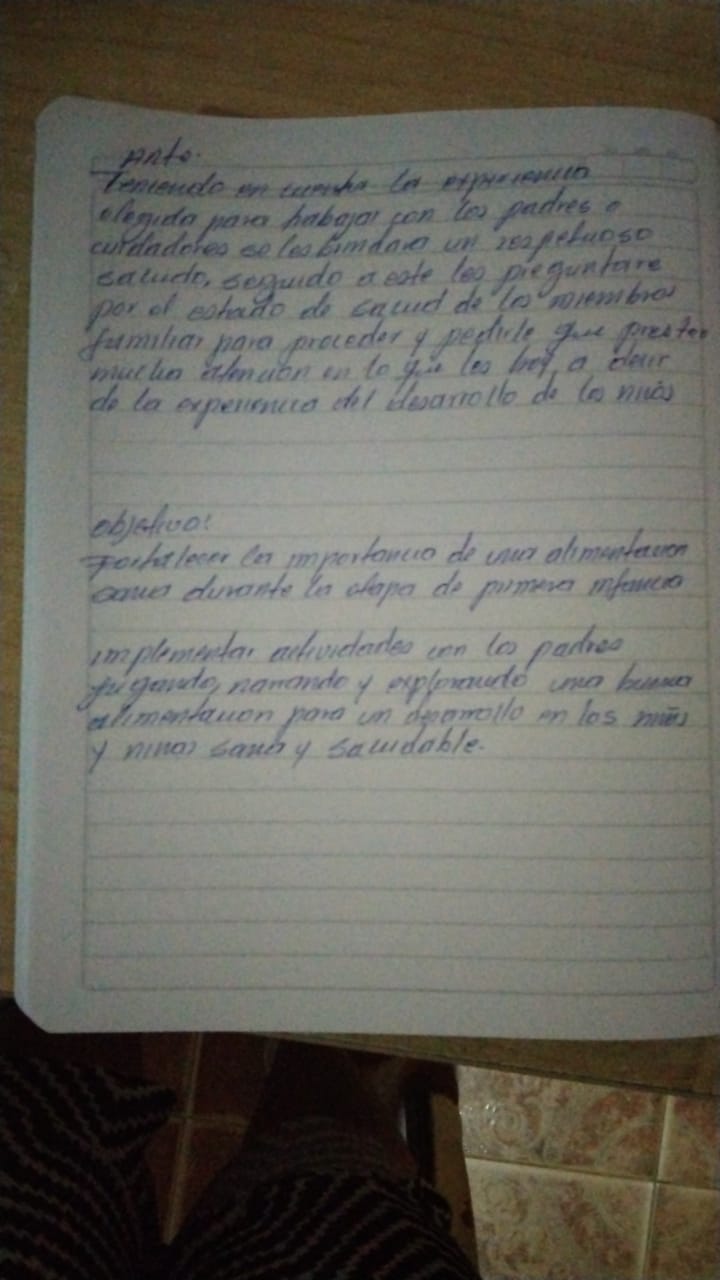 Ante.
Teniendo en cuenta la experiencia
elegida para trabajar con los padres o
cuidadores se les brindara un respetuoso
saludo, seguido a este les preguntare
por el estado de salud de los miembros
familiar para proceder y pedirle que presten
mucha atencion en lo que les voy a decir
de la experiencia del desarrollo de los niños
objetivo:
Fortalecer la importancia de una alimentacion
sana durante la etapa de primera infancia
implementar actividades con los padres
jugando, narrando y explorando una buena
alimentacion para un desarrollo en los niños
y niñas sana y saludable.